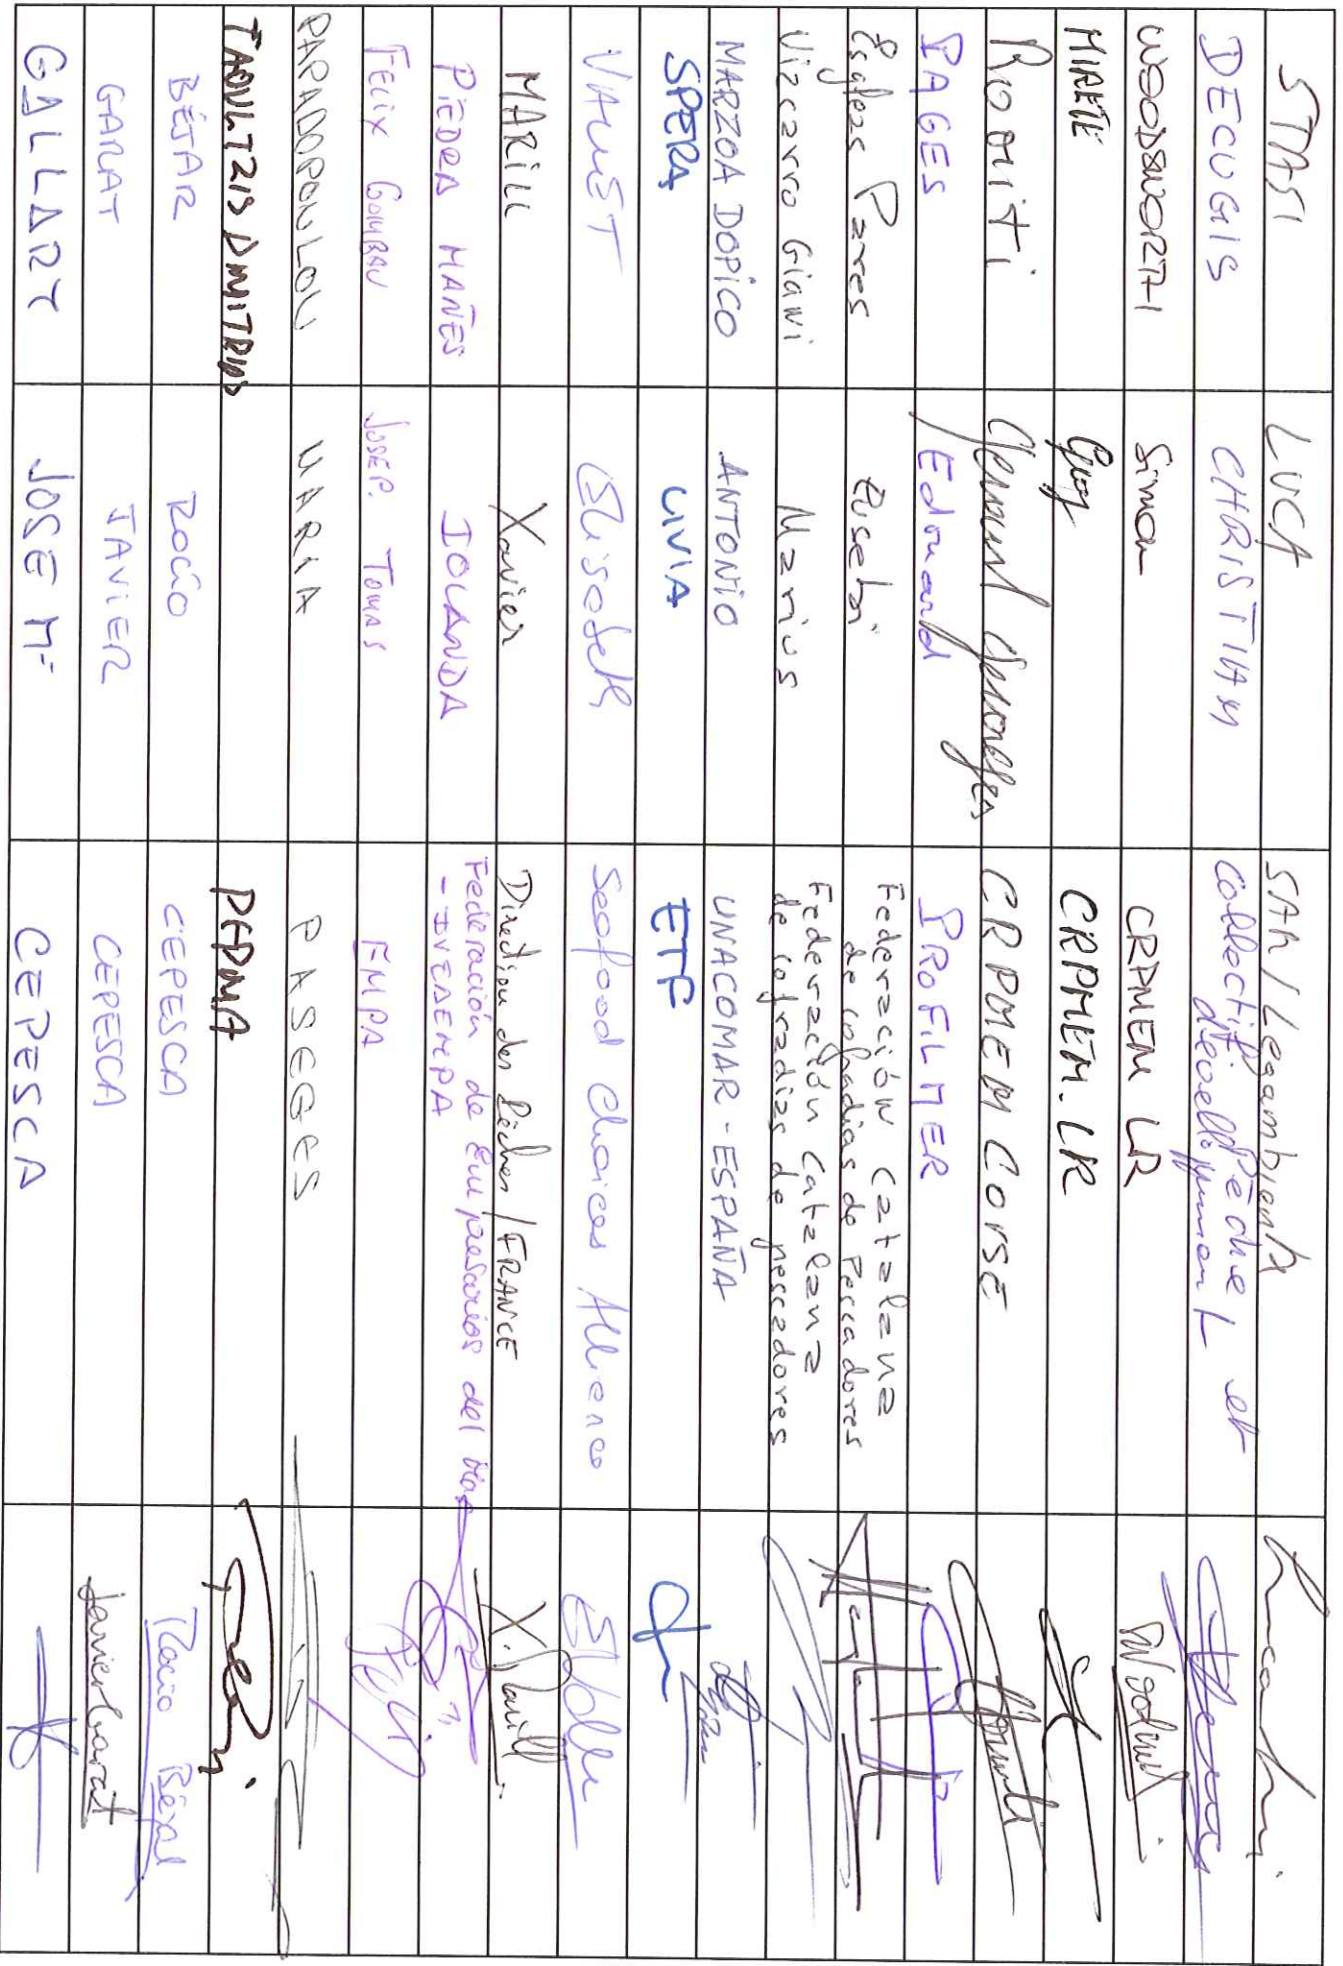 STASI LUCA SAM / Legambiente
DECUGIS CHRISTIAN Collectif Pêche et
développement
WOODSWORTH Simon CRPMEM LR
MIRETE Guy CRPMEM-LR
Rioniti Gérard CRPMEM CORSE
PAGES Edouard PROFILMER
Esgleas Parres Eusebi Federación Catalana
de Cofradías de Pescadores
Vizcarro Gianni Marius Federación Catalana
de cofradías de pescadores
MARZOA DOPICO ANTONIO UNACOMAR - ESPAÑA
SPERA LIVIA ETF
VALLET Elisabeth Seafood Choices Alliance
MARILL Xavier Direction des Pêches / FRANCE
X. Marill
PIEDRA MAÑES IOLANDA Federación de Empresarios del Mar
FELIX GOMBAU JOSEP. TOMAS FMPA
PAPADOPOULOU MARIA PASEGES
TAOULTZIS DMITRIOS PEPMA
BÉJAR ROCÍO CEPESCA Rocío Béjar
GARAT JAVIER CEPESCA Javier Garat
GALLART JOSE Mª CEPESCA